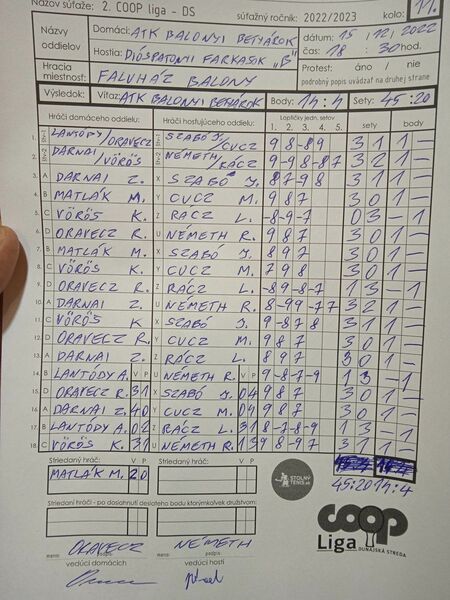 Názov súťaže: 2. COOP liga - DS súťažný ročník: 2022/2023 kolo: 11.
Názvy oddielov Domáci: ATK BALONYI BETYÁROK dátum: 15/12/2022
Hostia: DIÓSPATONYI FARKASOK „B" čas: 18 30 hod.
Hracia miestnosť: FALUHÁZ BALONY Protest: áno / nie
podrobný popis uvádzať na druhej strane
Výsledok: Víťaz: ATK BALONYI BETYÁROK Body: 14:4 Sety: 45:20
Hráči domáceho oddielu: Hráči hosťujúceho oddielu: Loptičky jedn. setov sety body
1. 2. 3. 4. 5.
1. LANTÓDY/ORAVECZ SZABÓ J./CUCZ 9 8 -8 9 3 1 1 -
2. DARNAI/VÖRÖS NÉMETH/RÁCZ 9 -9 8 -8 7 3 2 1 -
3. A DARNAI Z. X SZABÓ J. 8 7 -9 8 3 1 1 -
4. B MATLÁK M. Y CUCZ M. 9 8 7 3 0 1 -
5. C VÖRÖS K. Z RÁCZ L. -8 -9 -7 0 3 - 1
6. D ORAVECZ R. U NÉMETH R. 9 8 7 3 0 1 -
7. B MATLÁK M. X SZABÓ J. 8 9 7 3 0 1 -
8. C VÖRÖS K. Y CUCZ M. 7 9 8 3 0 1 -
9. D ORAVECZ R. Z RÁCZ L. -8 9 -8 -7 1 3 - 1
10. A DARNAI Z. U NÉMETH R. 8 -9 9 -7 7 3 2 1 -
11. C VÖRÖS K. X SZABÓ J. 9 -8 7 8 3 1 1 -
12. D ORAVECZ R. Y CUCZ M. 9 8 7 3 0 1 -
13. A DARNAI Z. Z RÁCZ L. 8 7 9 3 0 1 -
14. B LANTÓDY A. V P U NÉMETH R. V P 9 -8 -7 -9 1 3 - 1
15. D ORAVECZ R. 3 1 X SZABÓ J. 0 4 9 8 7 3 0 1 -
16. A DARNAI Z. 4 0 Y CUCZ M. 0 4 9 8 7 3 0 1 -
17. B LANTÓDY A. 0 2 Z RÁCZ L. 3 1 8 -7 -8 -9 1 3 - 1
18. C VÖRÖS K. 3 1 U NÉMETH R. 1 3 9 8 -9 7 3 1 1 -
Striedaný hráč: V P Striedaný hráč: V P
MATLÁK M. 2 0
45:20 14:4
STOLNÝ TENIS.sk
Striedaní hráči - po dosiahnutí desiateho bodu ktorýmkoľvek družstvom:
ORAVECZ NÉMETH
meno: podpis meno: podpis
vedúci domácich vedúci hostí
COOP
Liga DUNAJSKÁ STREDA